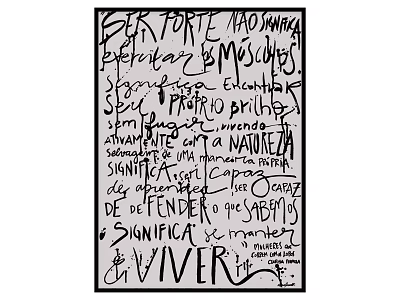 SER FORTE NÃO SIGNIFICA
exercitar os MÚSCULOS.
Significa ENCONTRAR
Seu PRÓPRIO brilho
sem fugir, vivendo
ATIVAMENTE COM A NATUREZA
selvagem de UMA maneira PRÓPRIA.
SIGNIFICA ser capaz
de aprender, SER CAPAZ
DE DEFENDER o que SABEMOS
SIGNIFICA se manter
MULHERES QUE
CORREM COM OS LOBOS
E VIVER